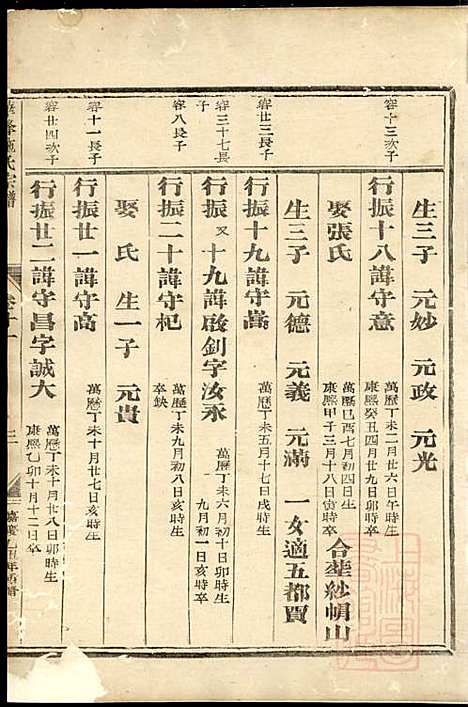 生三子 元妙 元政 元光
容十三次子
行振十八諱守意 萬歷丁未二月廿六日午時生
康熙癸丑四月廿九日寅時卒
娶張氏 萬歷己酉七月初四日生
康熙甲子三月十八日寅時卒 合塟紗帽山
生三子 元德 元義 元滿 一女適五都賈
容廿三長子
行振十九諱守嵩 萬歷丁未五月十七日戌時生
容三十七長子
行振又十九諱啟釗字汝永 萬歷丁未六月初十日卯時生
九月初一日亥時卒
容八長子
行振二十諱守杞 萬歷丁未九月初八日亥時生
卒缺
娶 氏 生一子 元貴
容十一長子
行振廿一諱守高 萬歷丁未十月廿七日亥時生
容廿四次子
行振廿二諱守昌字誠大 萬歷丁未十月廿八日卯時生
康熙乙卯十月十二日卒
氏宗譜
卷十一
三